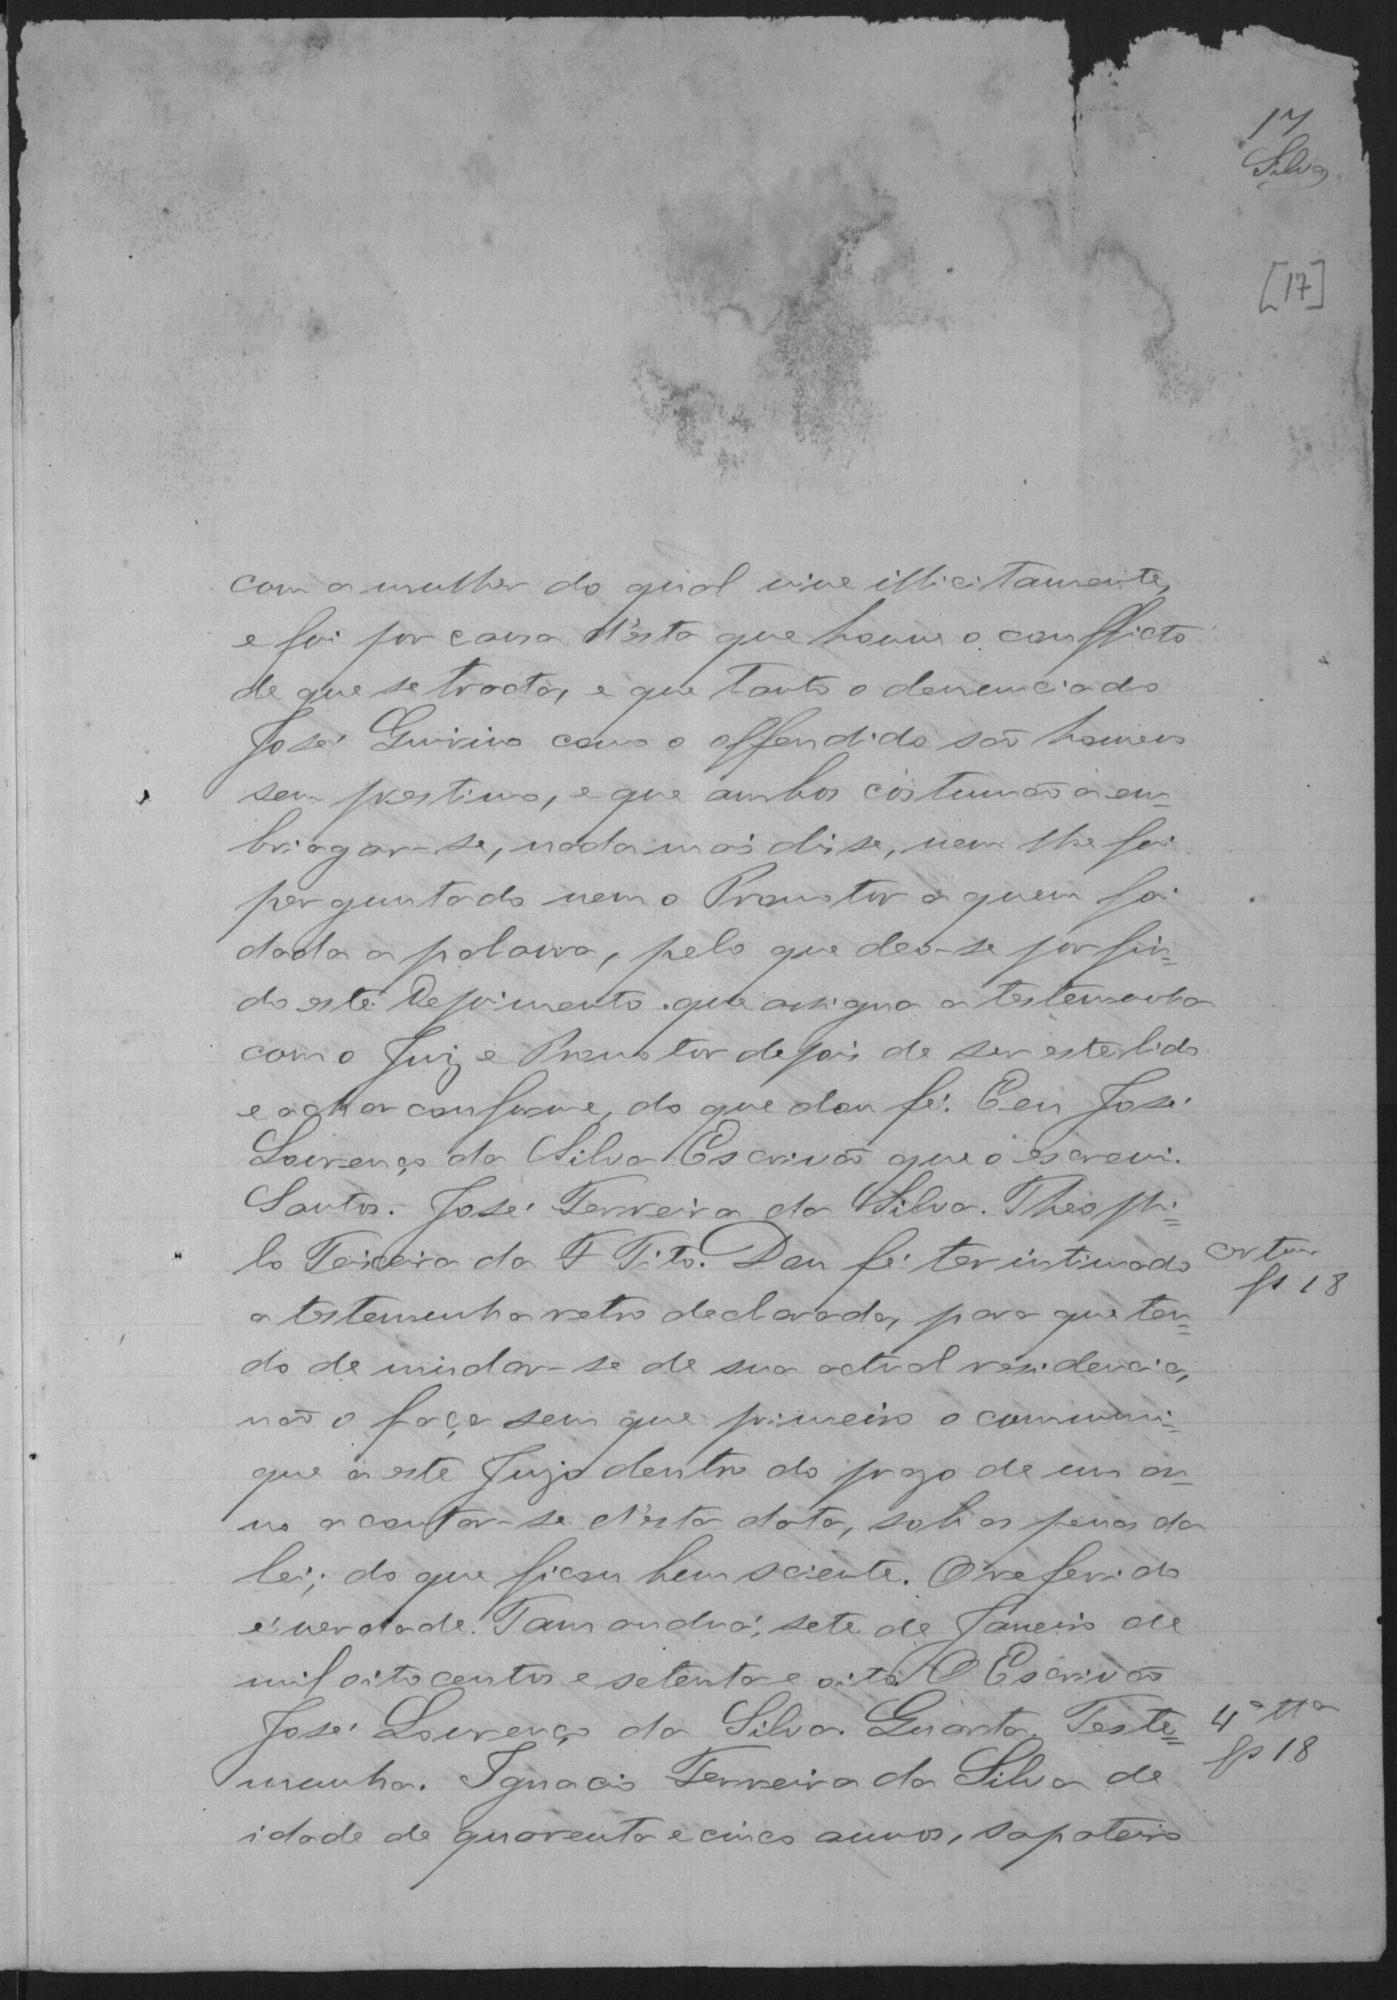 17
Silva
[17]
com a mulher do qual vive illicitamente,
e foi por causa d'esta que houve o conflicto
de que se tracta, e que tanto o denunciado
José Guirino como o offendido são homens
sem prestimo, e que ambos costumão à em-
briagar-se, nada mais disse, nem lhe foi
perguntado nem o Promotor a quem foi
dada a palavra, pelo que deo-se por fin=
do este Depoimento que assigna a testemunha
com o Juiz e Promotor depois de ser este lido
e achar conforme, do que dou fé. E eu José
Lourenço da Silva Escrivão que o escrevi.
Santos. José Ferreira da Silva. Theophi=
lo Teixeira da F Tito. Dou fé ter intimado
a testemunha retro declarada, para que ten=
do de mudar-se de sua actual residencia,
não o faça sem que primeiro o communi=
que a este Juizo dentro do prazo de um an-
no a contar-se d'esta data, sob as penas da
lei; do que ficou bem sciente. O referido
é verdade. Tamanduá, sete de Janeiro de
mil oito centos e setenta e oito. O Escrivão
José Lourenço da Silva. Quarta. Teste=
munha. Ignacio Ferreira da Silva de
idade de quarenta e cinco annos, sapateiro
fs 18
4ª ttª
fs 18